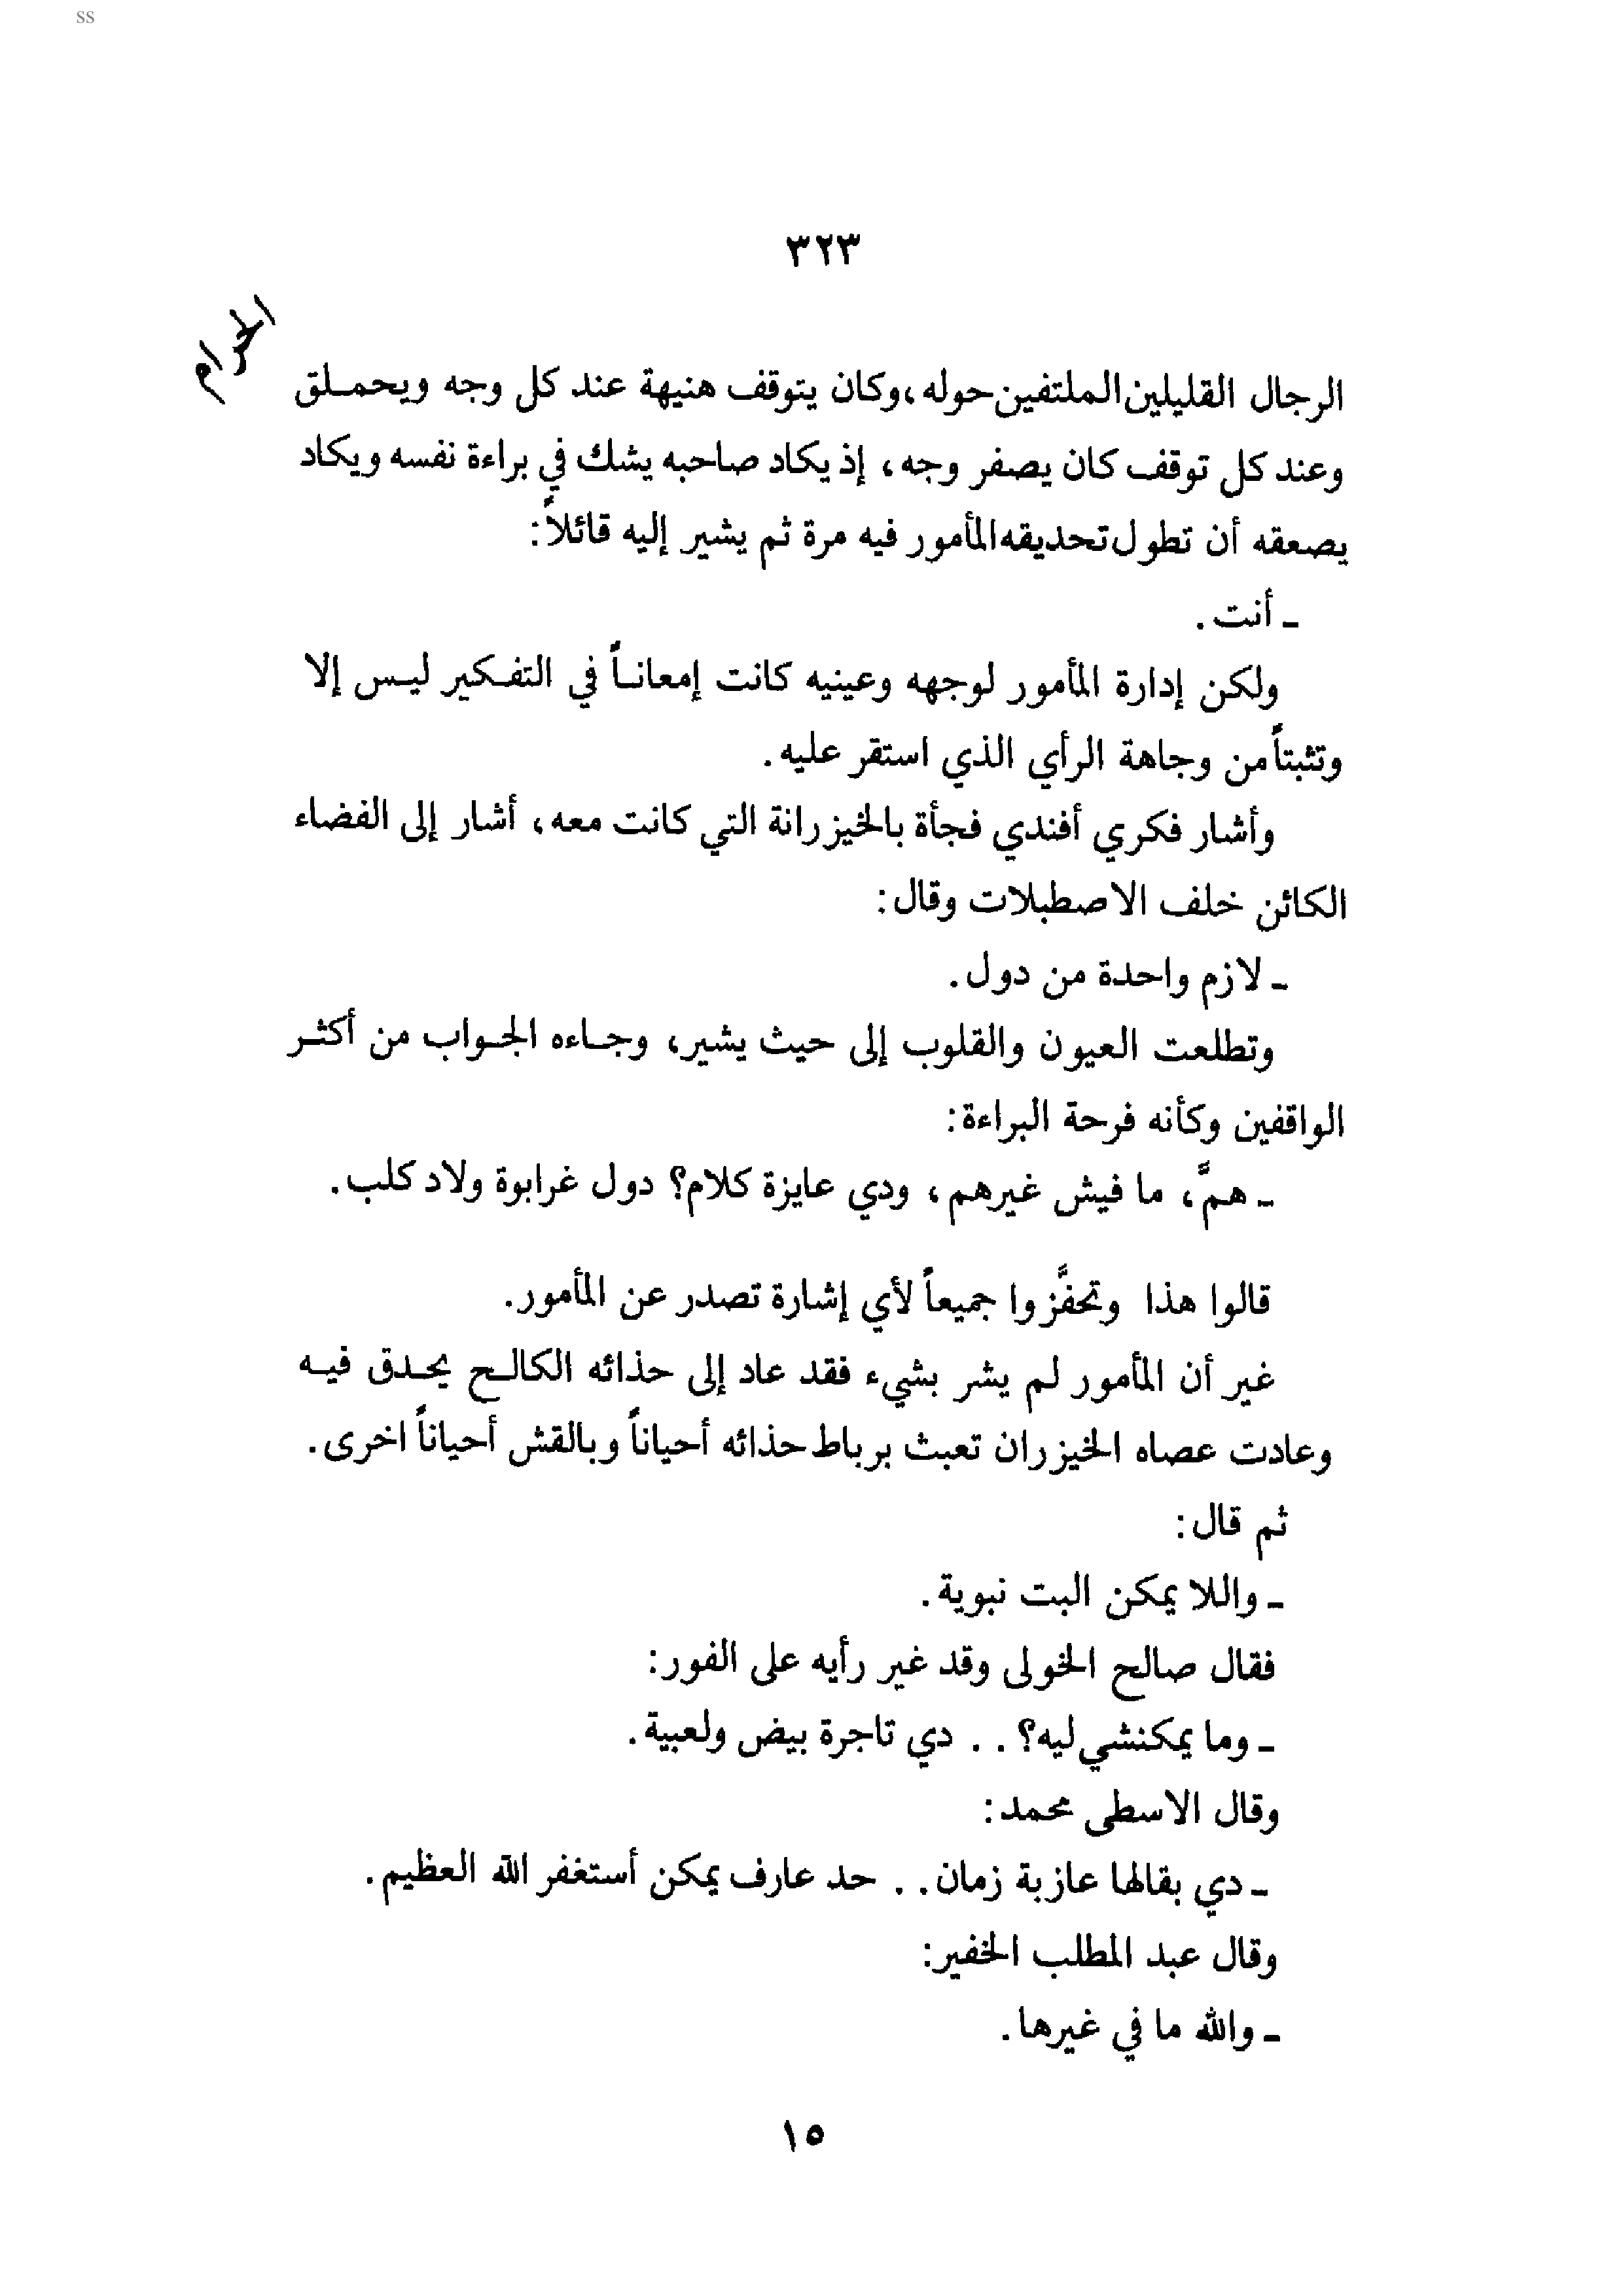 ss
٣٢٣
الحرام
الرجال القليلين الملتفين حوله، وكان يتوقف هنيهة عند كل وجه ويحمـلق
وعند كل توقف كان يصفر وجه، إذ يكاد صاحبه يشك في براءة نفسه ويكاد
يصعقه أن تطول تحديقه المأمور فيه مرة ثم يشير إليه قائلاً:
ـ أنت.
ولكن إدارة المأمور لوجهه وعينيه كانت إمعانـاً في التفـكير ليـس إلا
وتثبتاً من وجاهة الرأي الذي استقر عليه.
وأشار فكري أفندي فجأة بالخيزرانة التي كانت معه، أشار إلى الفضاء
الكائن خلف الاصطبلات وقال:
ـ لازم واحدة من دول.
وتطلعت العيون والقلوب إلى حيث يشير، وجـاءه الجـواب من أكثـر
الواقفين وكأنه فرحة البراءة:
ـ همَّ، ما فيش غيرهم، ودي عايزة كلام؟ دول غرابوة ولاد كلب.
قالوا هذا وتحفَّزوا جميعاً لأي إشارة تصدر عن المأمور.
غير أن المأمور لم يشر بشيء فقد عاد إلى حذائه الكالـح يحـدق فيـه
وعادت عصاه الخيزران تعبث برباط حذائه أحياناً وبالقش أحياناً اخرى.
ثم قال:
ـ واللا يمكن البت نبوية.
فقال صالح الخولى وقد غير رأيه على الفور:
ـ وما يمكنشي ليه؟ . . دي تاجرة بيض ولعبية.
وقال الاسطى محمد:
ـ دي بقالها عازبة زمان. . حد عارف يمكن أستغفر الله العظيم.
وقال عبد المطلب الخفير:
ـ والله ما في غيرها.
١٥